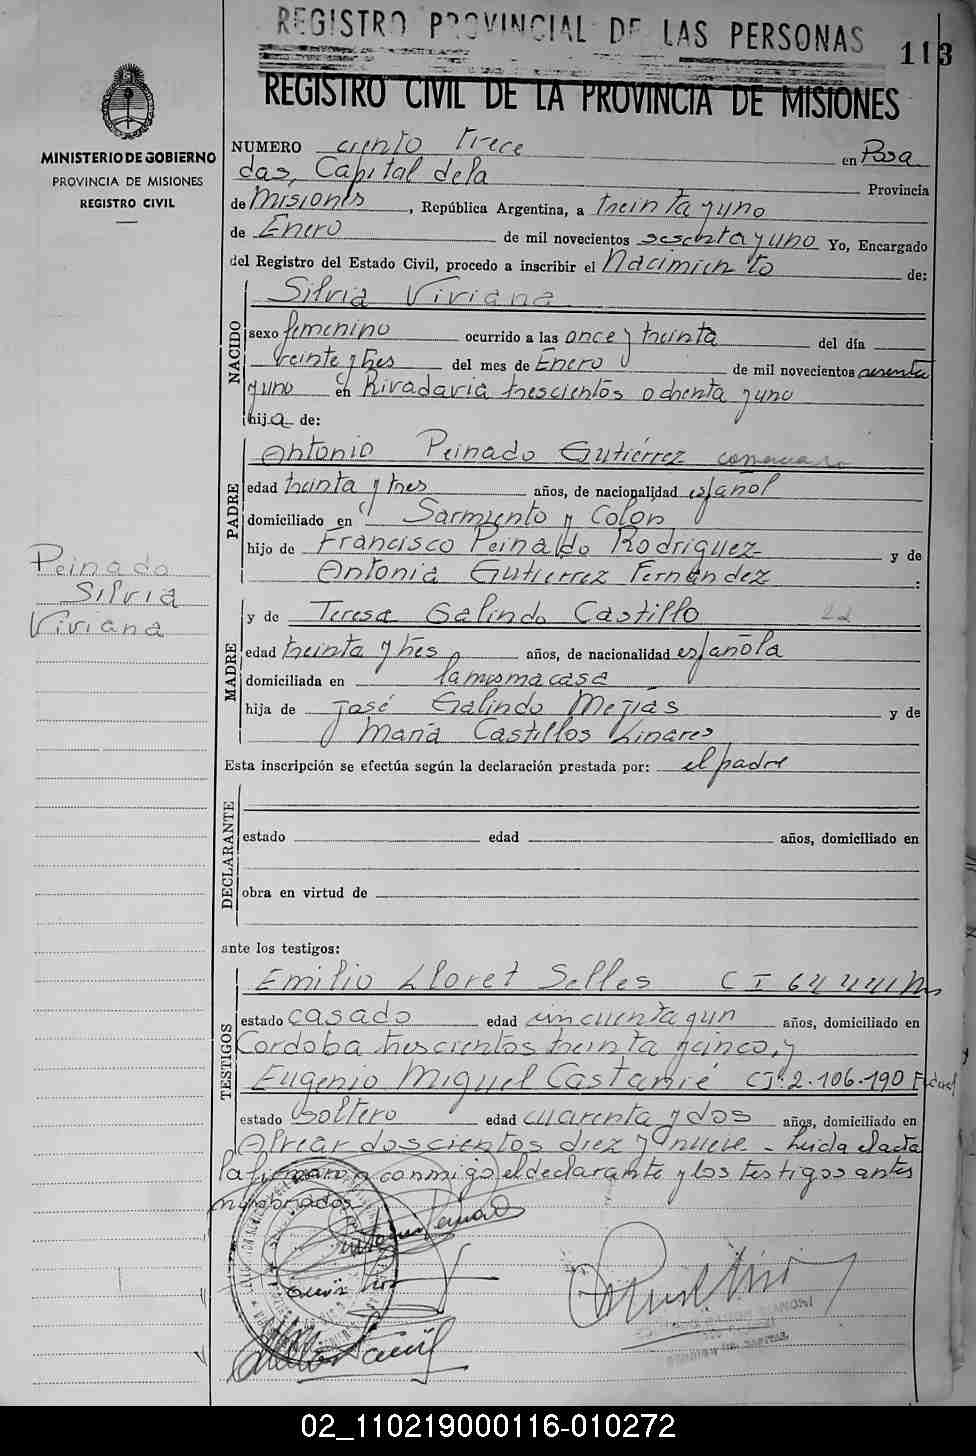 REGISTRO PROVINCIAL DE LAS PERSONAS
113
REGISTRO CIVIL DE LA PROVINCIA DE MISIONES
MINISTERIO DE GOBIERNO
PROVINCIA DE MISIONES
REGISTRO CIVIL
NUMERO ciento trece en Posa
das, Capital dela Provincia
de Misiones, República Argentina, a treinta y uno
de Enero de mil novecientos sesenta y uno Yo, Encargado
del Registro del Estado Civil, procedo a inscribir el Nacimiento de:
NACIDO
Silvia Viviana
sexo femenino ocurrido a las once y treinta del día
veinte y tres del mes de Enero de mil novecientos sesenta
y uno en Rivadavia trescientos ochenta y uno
hija de:
PADRE
Antonio Peinado Gutiérrez
edad treinta y tres años, de nacionalidad español
domiciliado en Sarmiento y Colón
hijo de Francisco Peinado Rodriguez y de
Antonia Gutierrez Fernández :
Peinado
Silvia
Viviana
MADRE
y de Teresa Galindo Castillo
edad treinta y tres años, de nacionalidad española
domiciliada en la misma casa
hija de José Galindo Mejías y de
María Castillos Linares
Esta inscripción se efectúa según la declaración prestada por: el padre
DECLARANTE
estado edad años, domiciliado en
obra en virtud de
ante los testigos:
TESTIGOS
Emilio Lloret Selles C I
estado casado edad cincuenta y un años, domiciliado en
Cordoba trescientos treinta y cinco, y
Eugenio Miguel Castamié CI. 2.106.190
estado soltero edad cuarenta y dos años, domiciliado en
Alvear doscientos diez y nueve - Leida el acta
la firman conmigo el declarante y los testigos antes
nombrados
02_110219000116-010272